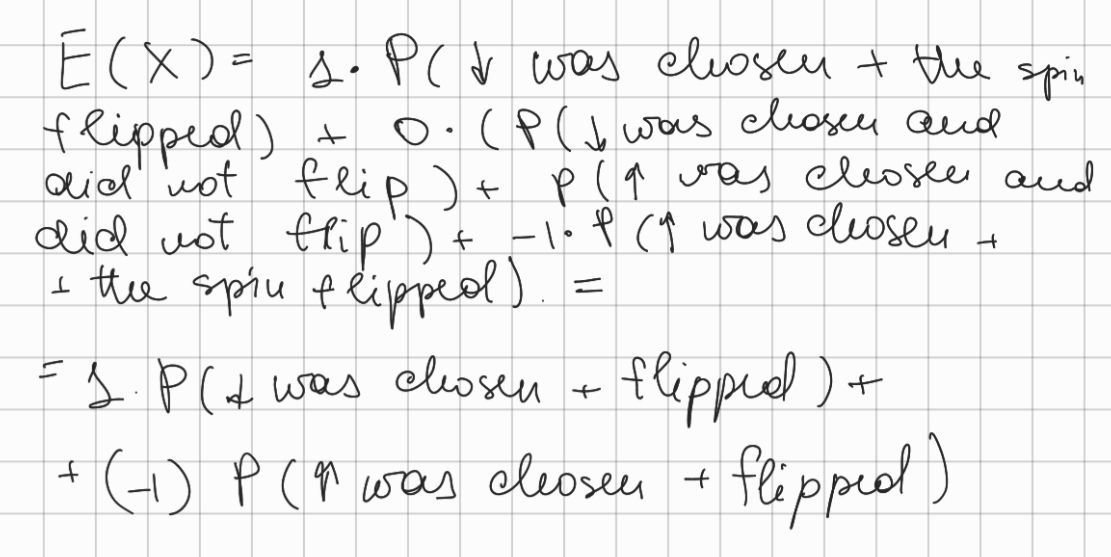 E(X) = 1 · P(↓ was chosen + the spin
flipped) + 0 · (P(↓ was chosen and
did not flip) + P(↑ was chosen and
did not flip) + -1 · P(↑ was chosen +
+ the spin flipped). =
= 1 · P(↓ was chosen + flipped) +
+ (-1) P(↑ was chosen + flipped)